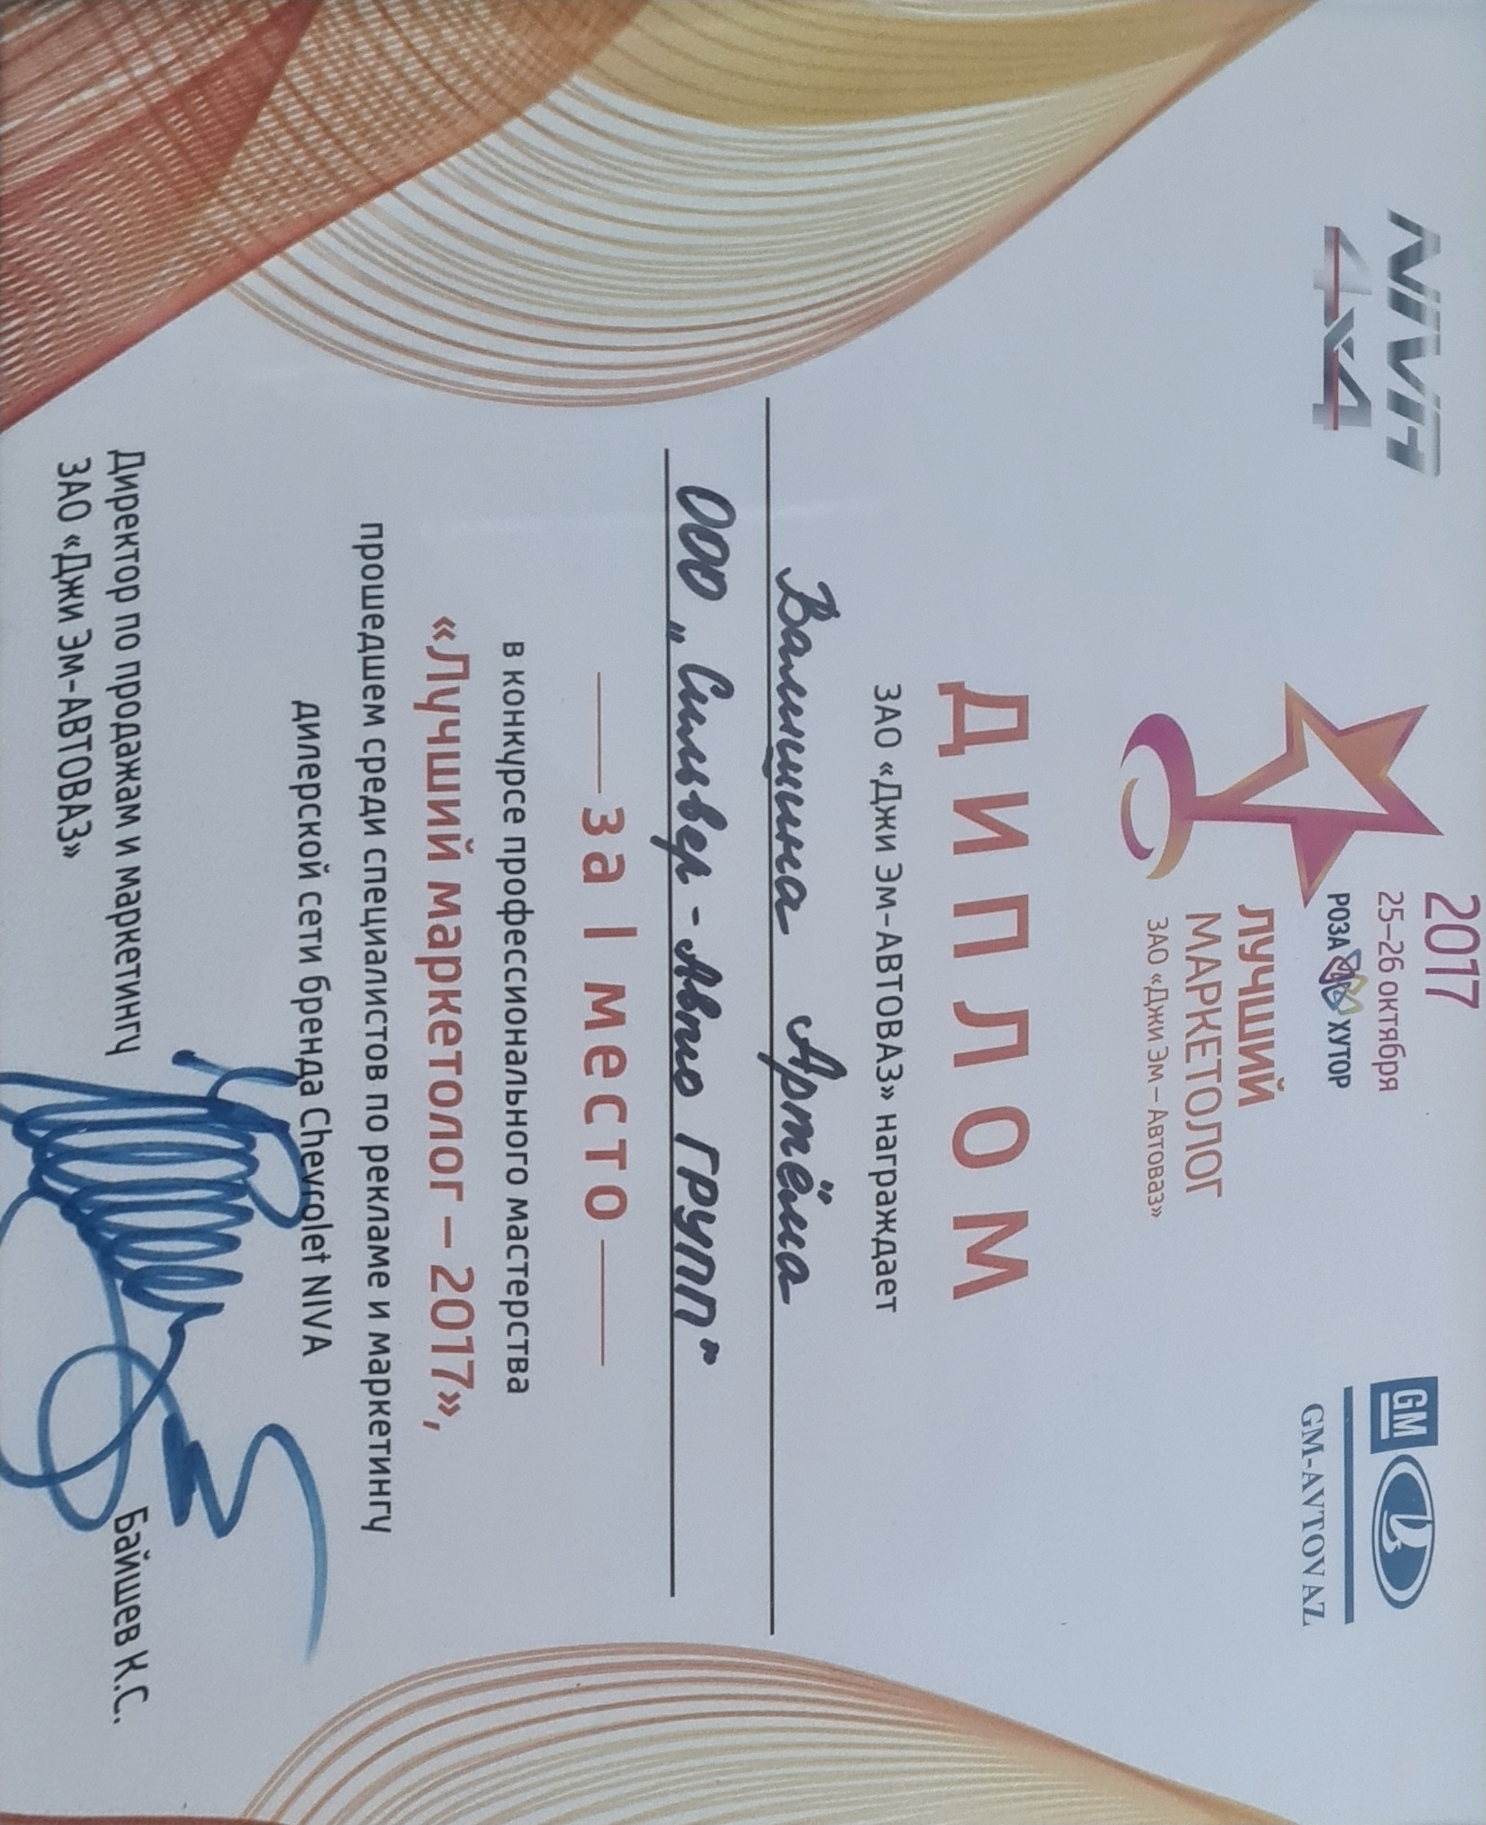 NIVA
4x4
2017
25–26 октября
РОЗА ХУТОР
ЛУЧШИЙ
МАРКЕТОЛОГ
ЗАО «Джи Эм – Автоваз»
GM
GM-AVTOVAZ
ДИПЛОМ
ЗАО «Джи Эм-АВТОВАЗ» награждает
Валишина Артёма
ООО „Сильвер - Авто ГРУПП"
за I место
в конкурсе профессионального мастерства
«Лучший маркетолог – 2017»,
прошедшем среди специалистов по рекламе и маркетингу
дилерской сети бренда Chevrolet NIVA
Директор по продажам и маркетингу
Байшев К.С.
ЗАО «Джи Эм-АВТОВАЗ»